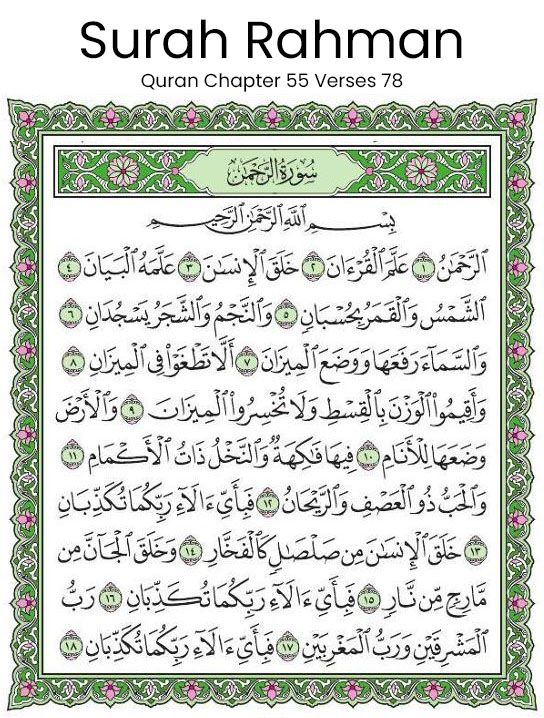 Surah Rahman
Quran Chapter 55 Verses 78
سُورَةُ الرَّحْمَٰن
بِسْمِ اللَّهِ الرَّحْمَٰنِ الرَّحِيمِ
الرَّحْمَٰنُ ١ عَلَّمَ الْقُرْءَانَ ٢ خَلَقَ الْإِنسَٰنَ ٣ عَلَّمَهُ الْبَيَانَ ٤
الشَّمْسُ وَالْقَمَرُ بِحُسْبَانٍ ٥ وَالنَّجْمُ وَالشَّجَرُ يَسْجُدَانِ ٦
وَالسَّمَاءَ رَفَعَهَا وَوَضَعَ الْمِيزَانَ ٧ أَلَّا تَطْغَوْا فِي الْمِيزَانِ ٨
وَأَقِيمُوا الْوَزْنَ بِالْقِسْطِ وَلَا تُخْسِرُوا الْمِيزَانَ ٩ وَالْأَرْضَ
وَضَعَهَا لِلْأَنَامِ ١٠ فِيهَا فَٰكِهَةٌ وَالنَّخْلُ ذَاتُ الْأَكْمَامِ ١١
وَالْحَبُّ ذُو الْعَصْفِ وَالرَّيْحَانُ ١٢ فَبِأَيِّ ءَالَاءِ رَبِّكُمَا تُكَذِّبَانِ
١٣ خَلَقَ الْإِنسَٰنَ مِن صَلْصَٰلٍ كَالْفَخَّارِ ١٤ وَخَلَقَ الْجَانَّ مِن
مَّارِجٍ مِّن نَّارٍ ١٥ فَبِأَيِّ ءَالَاءِ رَبِّكُمَا تُكَذِّبَانِ ١٦ رَبُّ
الْمَشْرِقَيْنِ وَرَبُّ الْمَغْرِبَيْنِ ١٧ فَبِأَيِّ ءَالَاءِ رَبِّكُمَا تُكَذِّبَانِ ١٨